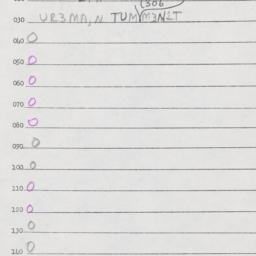 (306
030 UR3MA,N TUMM3NLT
040 O
050 O
060 O
070 O
080 O
090 O
100 O
110 O
120 O
130 O
140 O